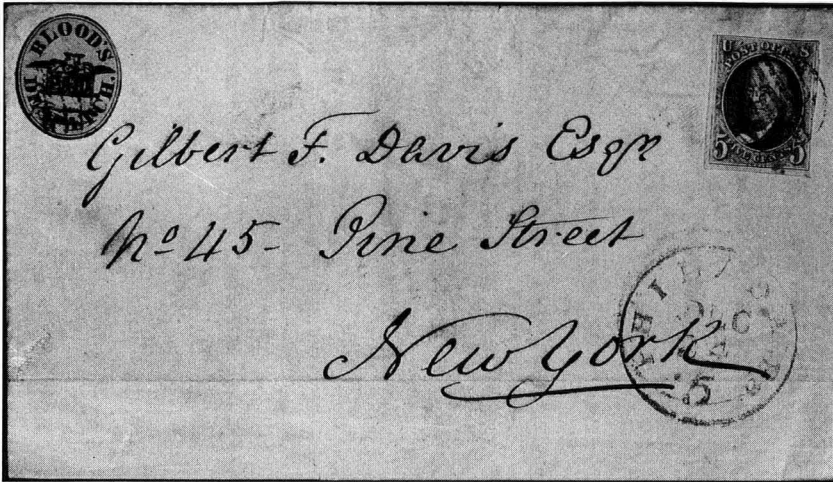 BLOOD'S
DESPATCH.
U S
POST OFFICE
5 FIVE CENTS 5
Gilbert F. Davis Esqr
No 45- Pine Street
New York
DEC
5